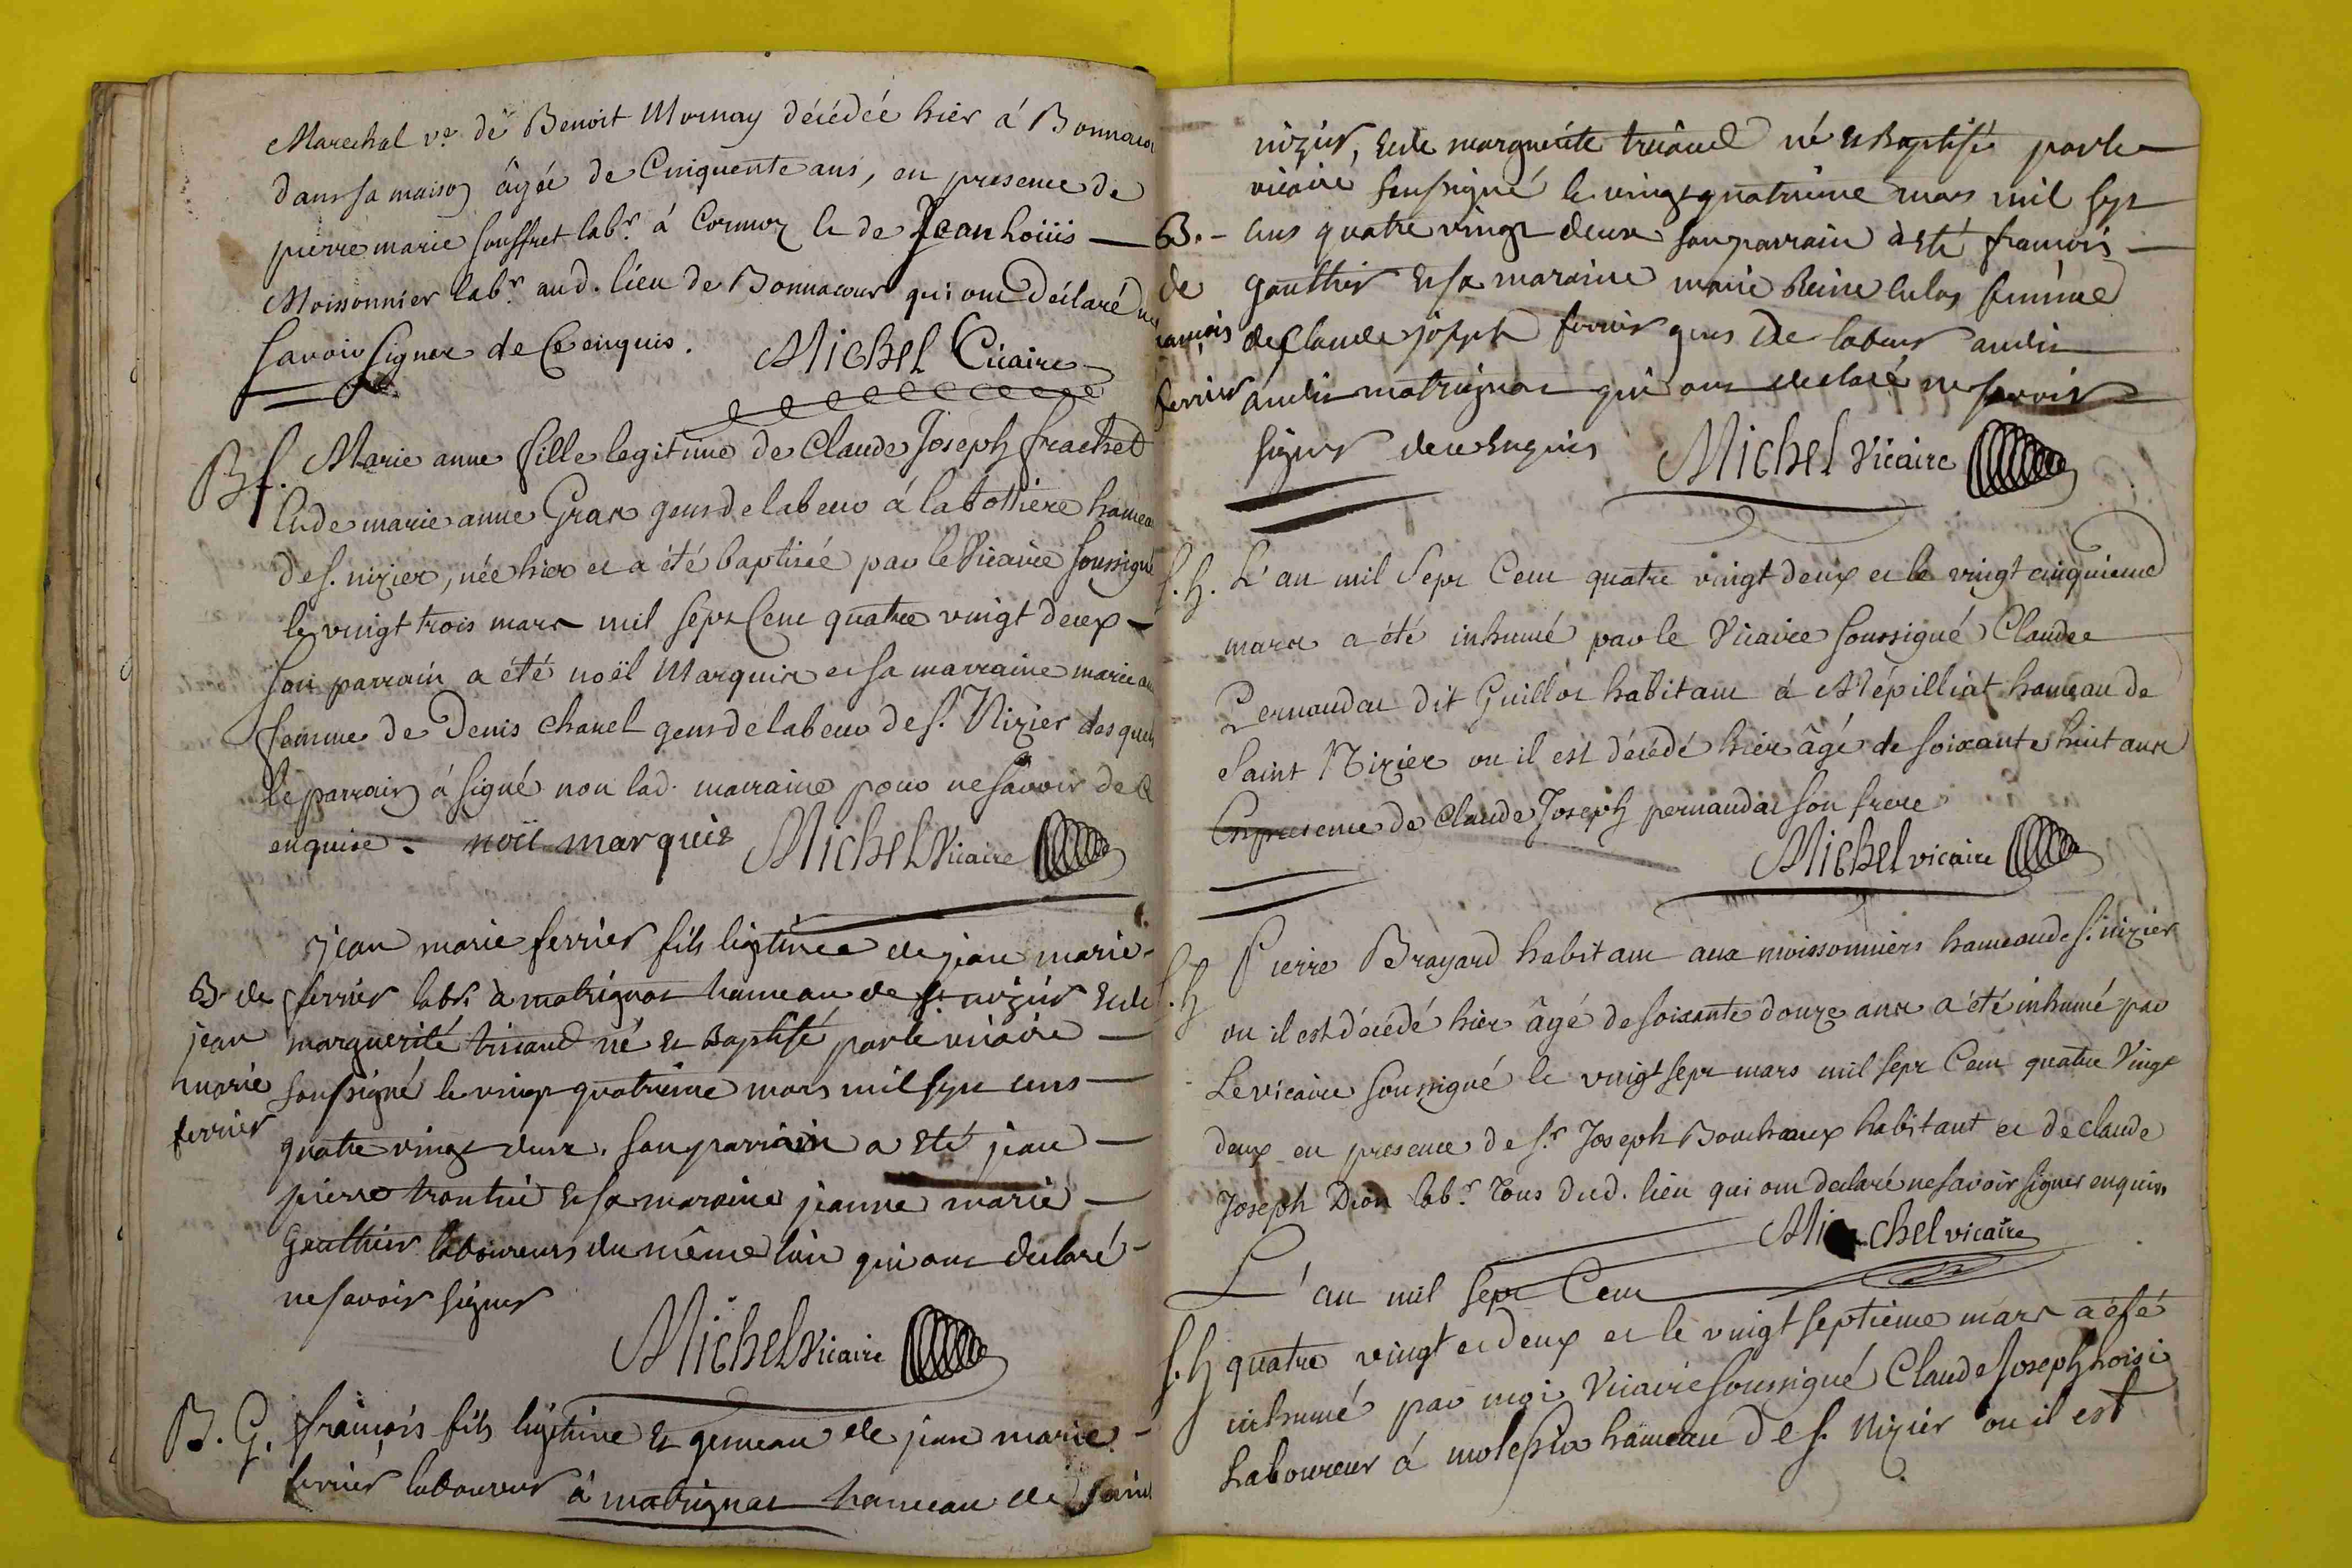 Marechal ve. de Benoit Mornay décédée hier á Bonnacour
dans sa maison âgée de Cinquente ans, en presence de
pierre marie souffret labr. à Cormoz & de Jean Loüis
Moissonnier labr. aud. lieu de Bonnacour qui ont déclaré ne
savoir signer de Ce enquis. Michel Vicaire
Bf. Marie anne fille legitime de Claude Joseph frachet
& de marie anne Gras gens de labeur á la bottiere hameau
de s. nizier, née hier et a été baptisée par le Vicaire soussigné
le vingt trois mars mil sept Cent quatre vingt deux
son parrain a été noël Marquis et sa marraine marie
femme de Denis chanel gens de labeur de s. Nizier desquels
le parrain á signé non lad. marraine pour ne savoir de ce
enquise. noël marquis Michel Vicaire
jean marie ferrier fils ligitime de jean marie
B de ferrier labr. à matrignat hameau de st. nizier & de
jean marguerite triand né & Baptisé par le vicaire
marie soussigné le vingt quatrieme mars mil sept cens
ferrier
quatre vingt deux. son parrain a été jean
pierre & sa maraine jeanne marie
Gauthier laboureurs du même lieu qui ont declaré
ne savoir signer
Michel Vicaire
B. G. françois fils ligitime & gemeau de jean marie
ferrier laboureur à matrignat hameau de saint
nizier, & de marguerite triand né & Baptisé par le
vicaire soussigné le vingt quatrieme mars mil sept
B. cens quatre vingt deux son parrain à été francois
de gauthier & sa maraine marie Reine femme
francois de Claude joseph ferrier gens de labeur audit
ferrier audit matrignat qui ont declaré ne savoir
signer de ce enquis Michel Vicaire
s. h. L'an mil sept Cent quatre vingt deux et le vingt cinquieme
mars a été inhumé par le Vicaire soussigné Claude
Pernaudat dit Guillot habitant á Mépilliat hameau de
Saint Nizier ou il est décédé hier âgé de soixante huit ans
En presence de Claude Joseph pernaudat son frere
Michel vicaire
s. h Pierre Brayard habitant aux moissonniers hameau de s. nizier
ou il est décédé hier âgé de soixante douze ans a été inhumé par
Le vicaire soussigné le vingt sept mars mil sept Cent quatre Vingt
deux en presence de sr. Joseph Bouchaux habitant et de claude
Joseph Dion labr. Tous dud. lieu qui ont declaré ne savoir signer enquis.
Michel vicaire
L'an mil sept Cent
s. h quatre vingt et deux et le vingt septieme mars a été
inhumé par moi Vicaire soussigné Claude Joseph
Laboureur á hameau de s. Nizier ou il est